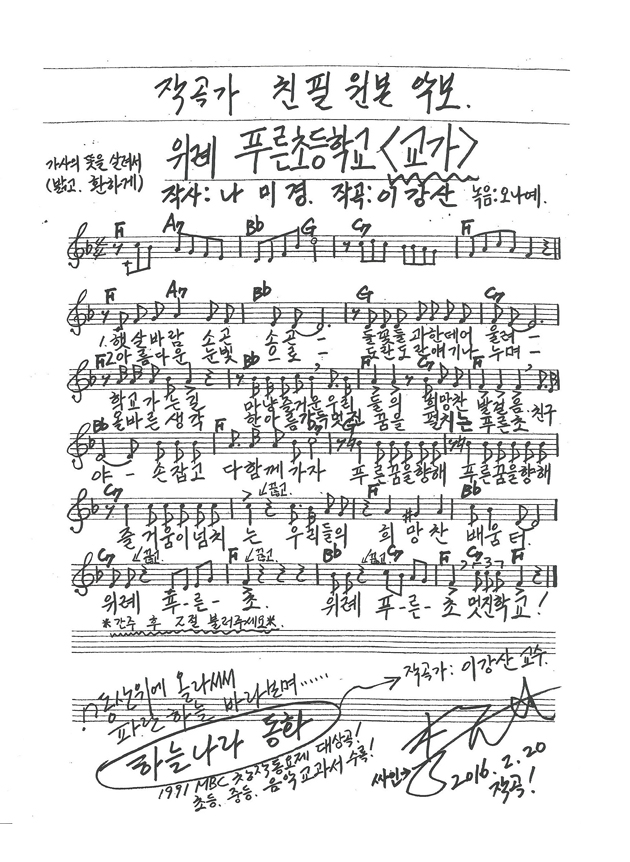 작곡가 친필 원본 악보.
가사의 뜻을 살려서
(밝고. 환하게)
위례 푸른초등학교 <교가>
작사: 나 미 경. 작곡: 이 강 산 녹음: 오나예.
F A7 Bb G C7 F
F A7 Bb G C7
1. 햇살바람 소곤 소곤 - 들꽃들과한데어 울려 -
2. 아름다운 눈빛 으로 - 도란도란얘기나 누며 -
F Bb F
학교가는길 마냥즐거운우리 들의 희망찬 발걸음. 친구
올바른생각 한아름가득멋진 꿈을 펼치는 푸른초
Bb C7 F
야 - 손잡고 다함께가자 푸른꿈을향해 푸른꿈을향해
C7 끊고. F Bb
즐거움이넘치 는 우리들의 희 망찬 배움터.
C7 끊고. F 끊고. Bb 끊고 C7 F C7 F
위례 푸-른- 초. 위례 푸-른- 초 멋진학교!
*간주 후 2절 불러주세요*.
동산위에 올라서서
파란하늘 바라보며......
작곡가: 이강산 교수.
하늘나라 동화
1991 MBC 창작동요제 대상곡!
초등, 중등, 음악교과서 수록!
싸인→
2016. 2. 20
작곡!